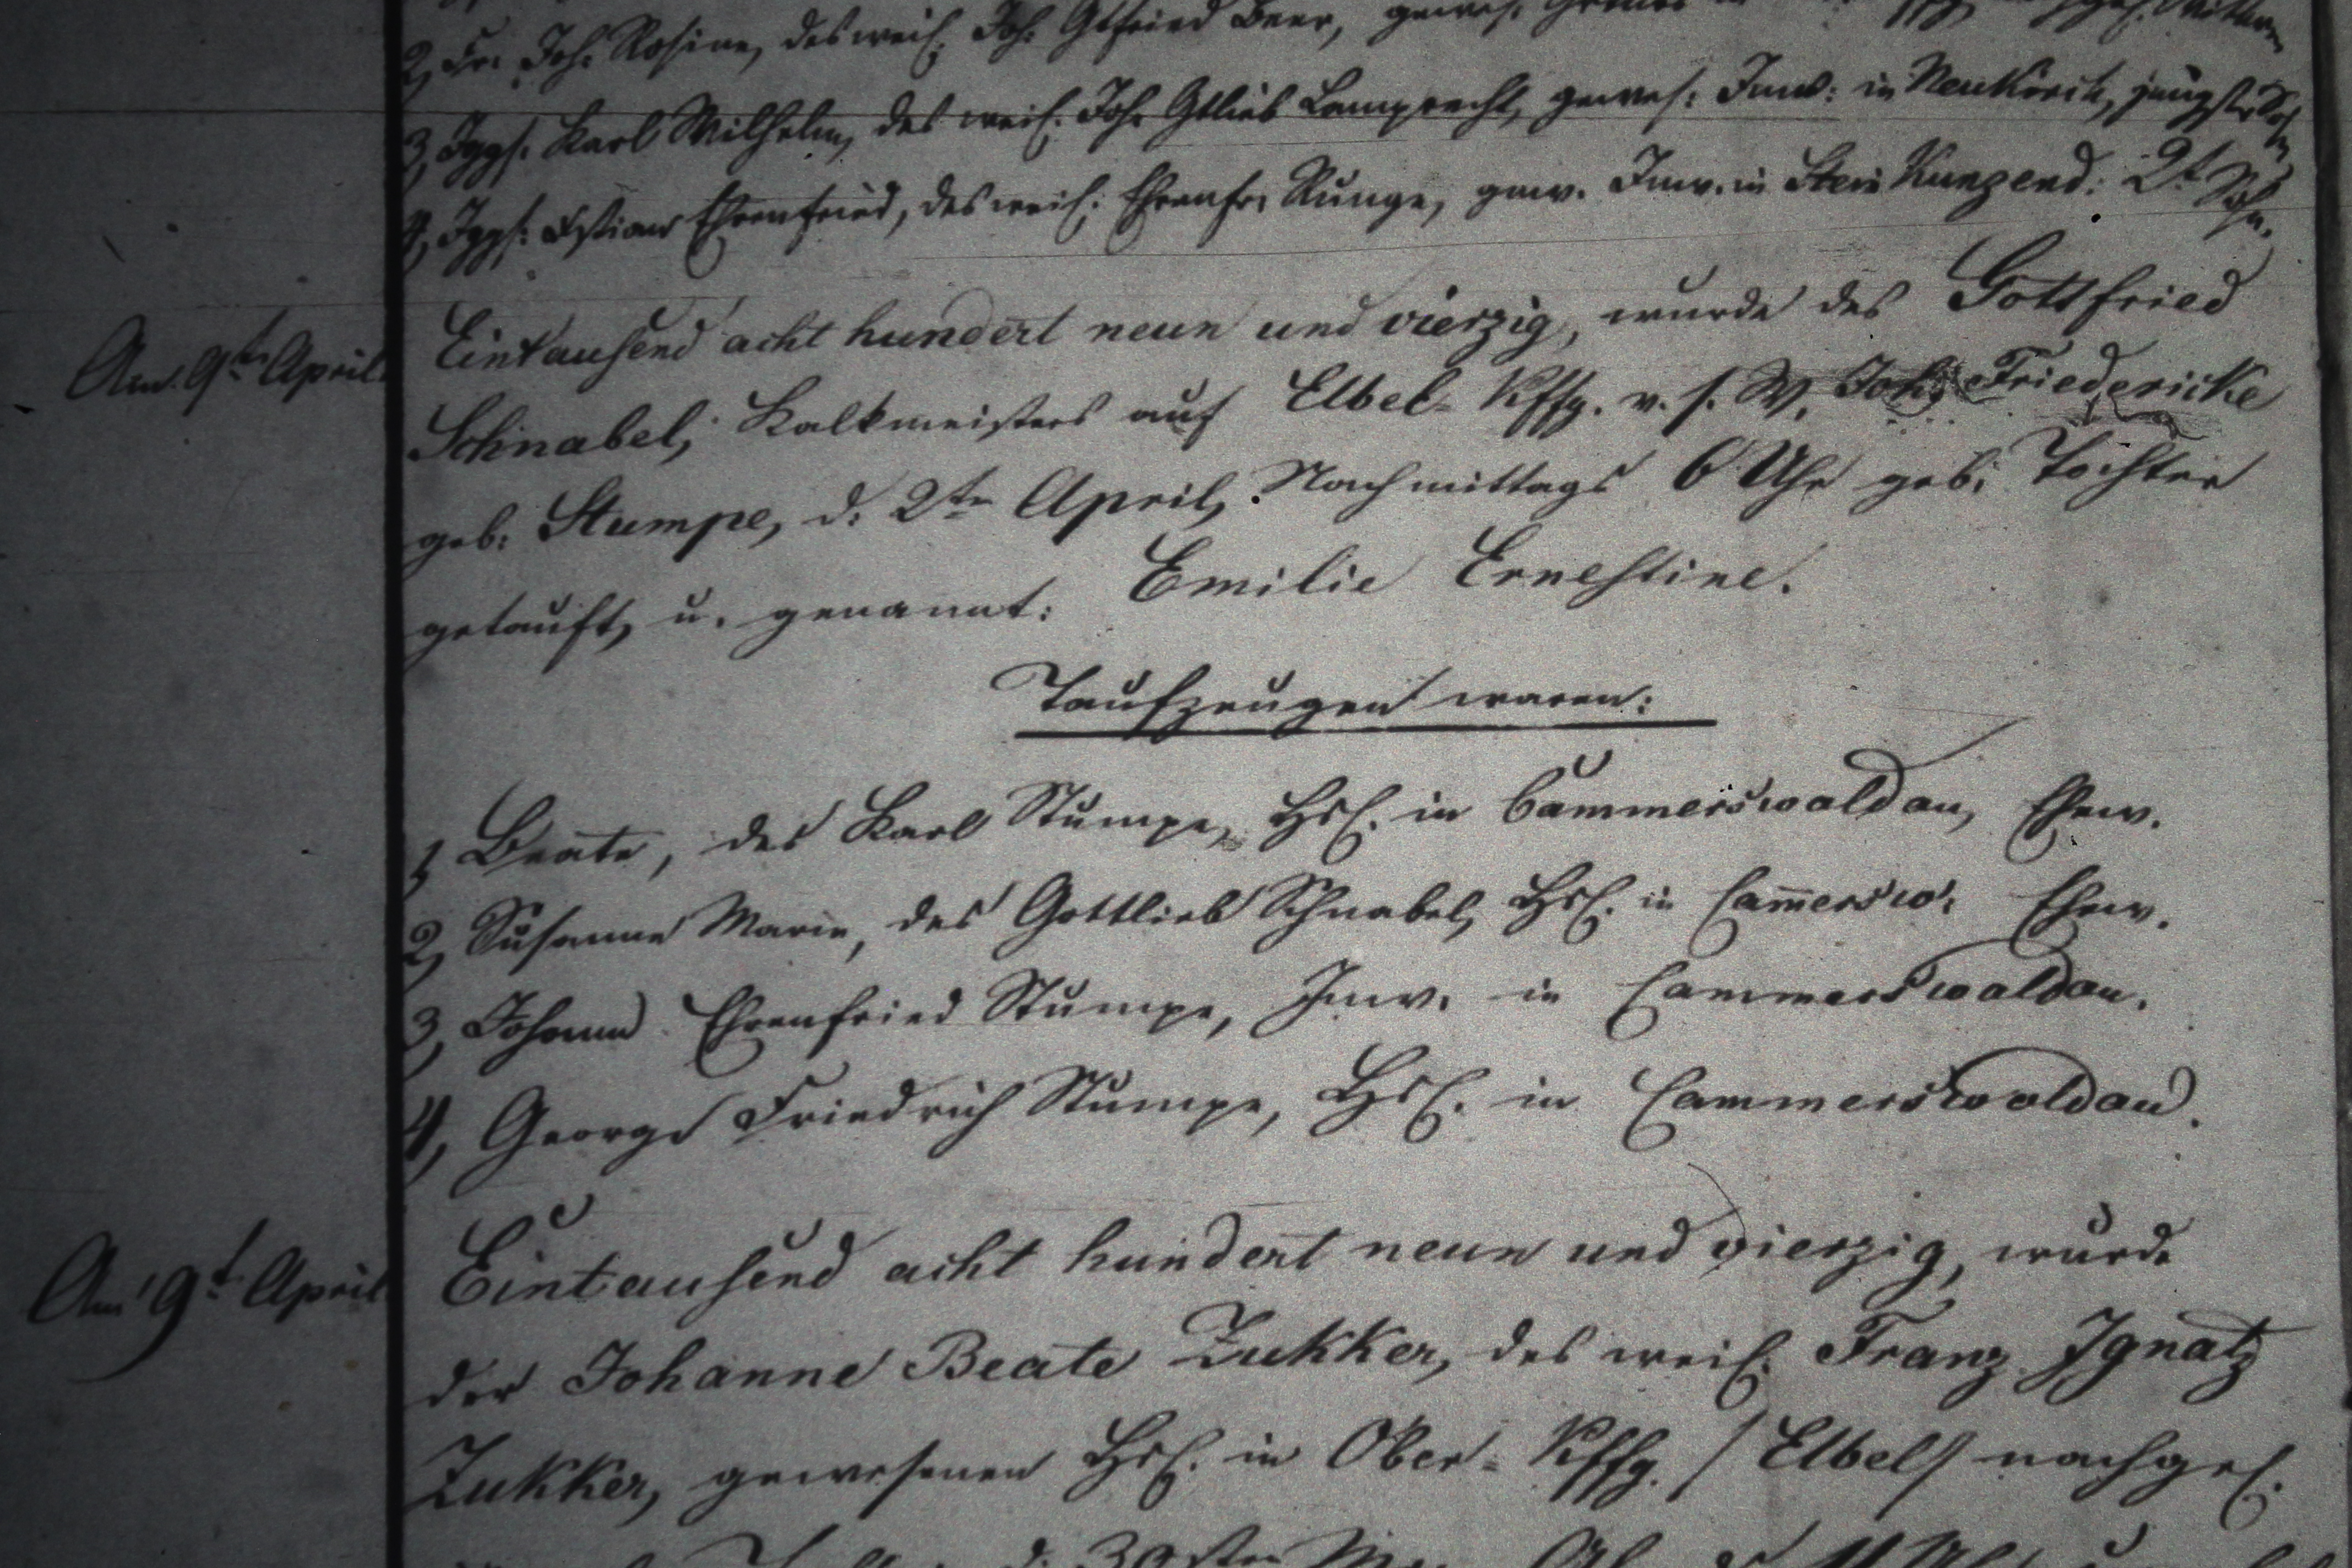 2, Fr. Joh. Rosine, des weil. Joh. Gtfried Beer, gewes.
3, Iggs. Karl Wilhelm, des weil. Joh. Gtlieb Lamprecht, gewes: Inw: in Neukirch, jüngster Sohn
4, Iggs: Chstian Ehrenfried, des weil. Ehrenfr. Runge, gew. Inw. in Stein Kunzend: 2t Sohn.
Am 9ten April. Eintausend acht hundert neun und vierzig, wurde des Gottfried
Schnabel, Kalkmeisters auf Elbel-Kffg. v. s. W. Joh: Friedericke
geb: Stumpe, d. 2ten April, Nachmittags 6 Uhr geb. Tochter
getauft, u. genannt: Emilie Ernestine.
Taufzeugen waren:
1 Beate, des Karl Stumpe, Hsl. in Cammerswaldau, Ehew.
2, Susanne Marie, des Gottlieb Schnabel, Hsl. in Cam̄ersw: Ehew.
3, Johann Ehrenfried Stumpe, Inw. in Cammerswaldau.
4, George Friedrich Stumpe, Hsl. in Cammerswaldau.
Am 9t April Eintausend acht hundert neun und vierzig, wurde
der Johanne Beate Zukker, des weil. Franz Ignatz
Zukker, gewesenen Hsl. in Ober-Kffg. / Elbel / nachgel.